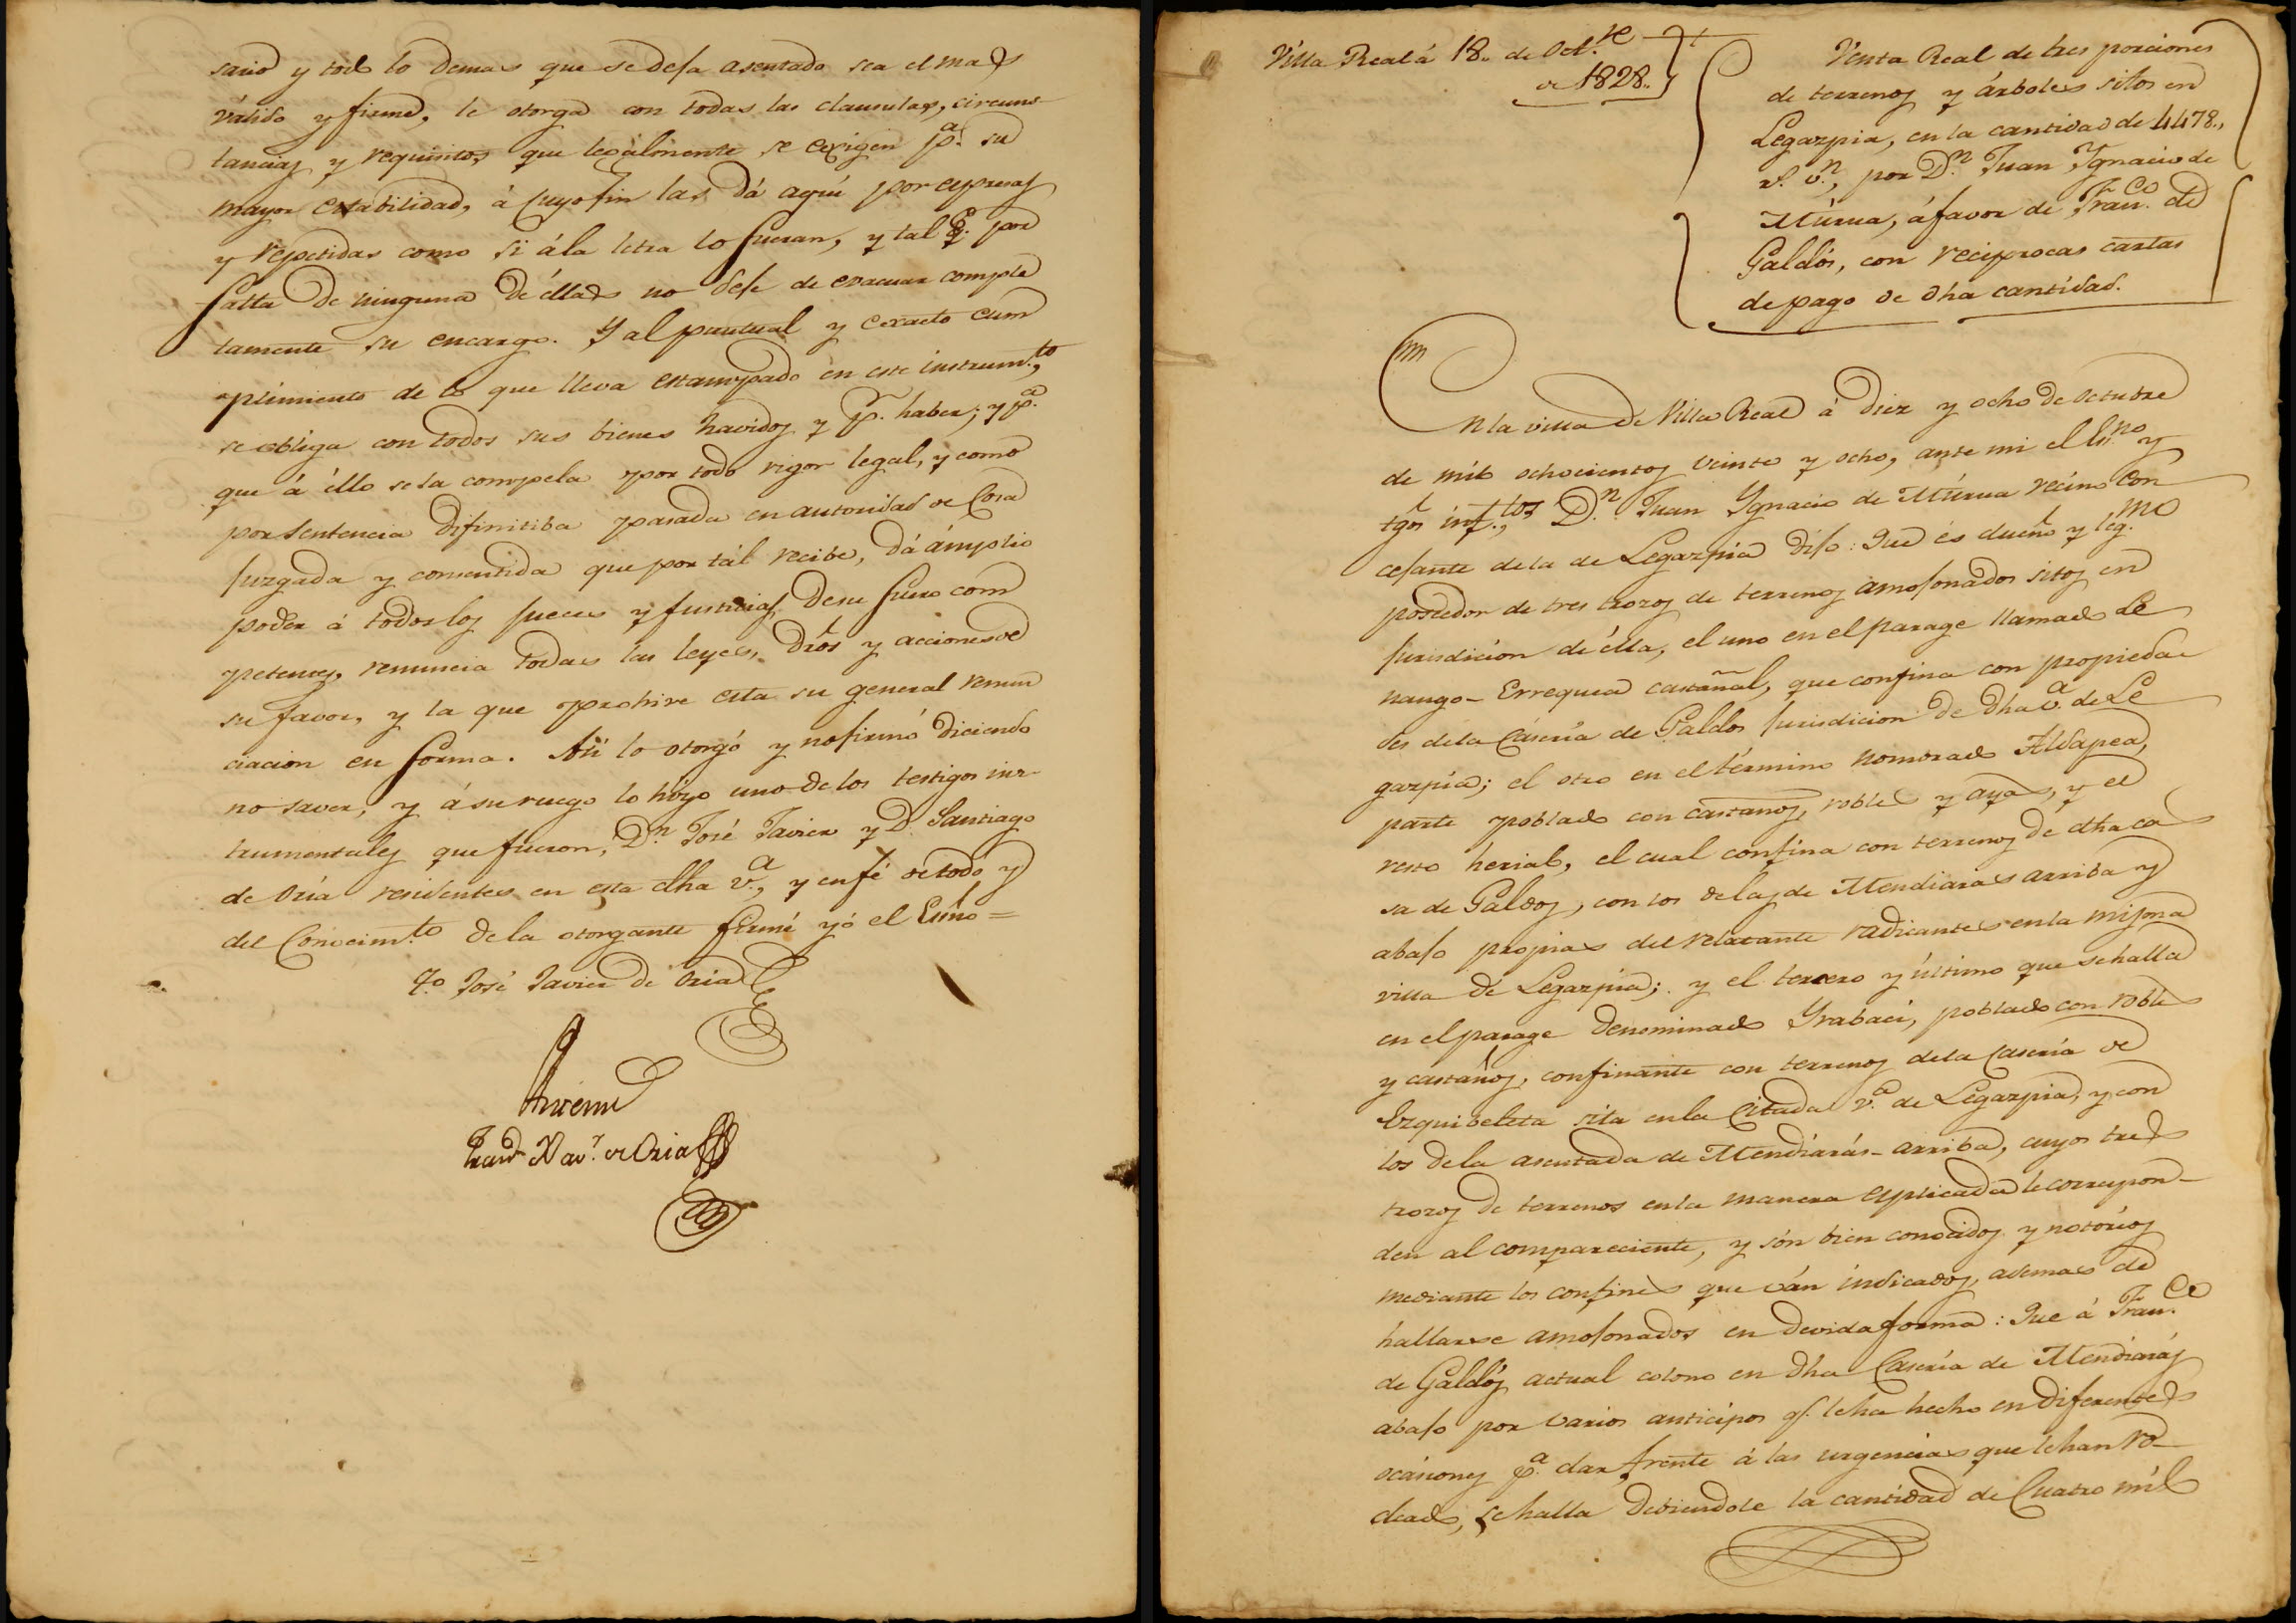 sario y todo lo demas que se deja asentado sea el mas
válido y firme, le otorga con todas las clausulas, circuns
tancias y requisitos que legalmente se exigen p.ª su
mayor estabilidad, á cuyo fin las dá aquí por expresas
y repetidas como si á la letra lo fueran, y tal q.e por
falta de ninguna de éllas no deje de evacuar comple
tamente su encargo. Y al puntual y exacto cum
plimiento de lo que lleva estampado en este instrum.to,
se obliga con todos sus bienes havidos y p.r haber; y p.ª
que á éllo se la compela por todo rigor legal, y como
por sentencia difinitiba pasada en autoridad de Cosa
juzgada y consentida que por tál recibe, dá ámplio
poder á todos los jueces y justicias de su fuero com
petentes, renuncia todas las leyes, dros y acciones de
su favor, y la que prohive esta su general renun
ciacion en forma. Así lo otorgó y no firmó diciendo
no saver, y á su ruego lo hizo uno de los testigos ins-
trumentales que fueron, D.n José Javier y D. Santiago
de Oria residentes en esta dha v.ª, y en fé de todo y
del Conocim.to de la otorgante firmé yó el Esno =
T.o José Javier de Oria
Ante mi
Fran.co Xav.r de Oria
Villa Real á 18. de Oct.re
de 1828..
Venta Real de tres porciones
de terrenos y árboles sitos en
Legazpia, en la cantidad de 4478.,
r.s v.n, por D.n Juan Ygnacio de
Múrua, á favor de Fran.co de
Galdós, con reciprocas cartas
de pago de dha cantidad.
En la villa de Villa Real á diez y ocho de Octubre
de mil ochocientos veinte y ocho, ante mi el Es.no y
tgos inf.tos D.n Juan Ygnacio de Múrua vecino con
cejante de la de Legazpia dijo: Que és dueño y leg.mo
poseedor de tres trozos de terrenos amojonados sitos en
jurisdicion de élla, el uno en el parage llamado Le
nango-Errequea castañal, que confina con propieda-
des de la Caseria de Galdos jurisdicion de dha v.ª de Le
gazpia; el otro en el término nombrado Aldapea,
parte poblado con castaños, robles y ayas, y el
resto herial, el cual confina con terrenos de dha ca
sa de Galdos, con los de las de Mendiaras arriba y
abajo propias del relatante radicantes en la misma
villa de Legazpia; y el tercero y último que se halla
en el parage denominado Yrabaci, poblado con robles
y castaños, confinante con terrenos de la Caseria de
Ezquibeleta sita en la Citada v.ª de Legazpia, y con
los de la asentada de Mendiarás-arriba, cuyos tres
trozos de terrenos en la manera explicada le correspon-
den al compareciente, y són bien conocidos y notorios
mediante los confines que ván indicados, ademas de
hallarse amojonados en devida forma: Que á Fran.co
de Galdós actual colono en dha Caseria de Mendiarás
abajo por varios anticipos q.e le ha hecho en diferentes
ocasiones p.ª dar frente á las urgencias que le han ro-
deado, se halla debiendole la cantidad de Cuatro mil